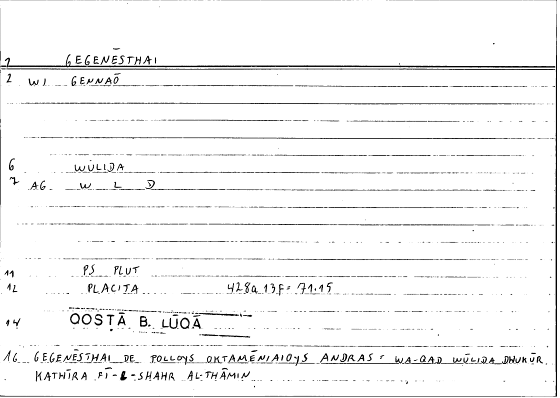 1 GEGENĒSTHAI
2 WI GENNAŌ
6 WŪLIDA
7 AG W L D
11 PS PLUT
12 PLACITA 428a13f = 71.15
14 QOSTĀ B. LŪQĀ
16 GEGENĒSTHAI DE POLLOYS OKTAMĒNIAIOYS ANDRAS = WA-QAD WŪLIDA DHUKŪR
KATHĪRA FĪ-L-SHAHR AL-THĀMIN